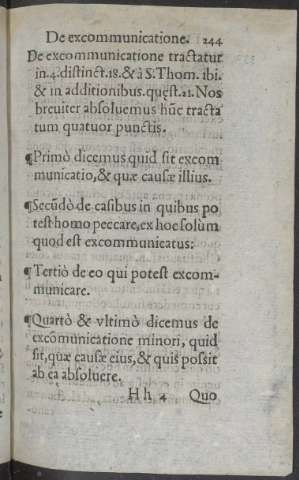 De excommunicatione. 244
De excommunicatione tractatur
in.4.distinct.18.& à S.Thom. ibi.
& in additionibus.quęst.21.Nos
breuiter absoluemus hũc tracta
tum quatuor punctis.
¶Primò dicemus quid sit excom
municatio,& quæ causæ illius.
¶Secũdò de casibus in quibus po
test homo peccare,ex hoc solùm
quod est excommunicatus:
¶Tertiò de eo qui potest excom-
municare.
¶Quartò & vltimò dicemus de
excõmunicatione minori, quid
sit,quæ causæ eius,& quis possit
ab ea absoluere.
H h 4 Quo